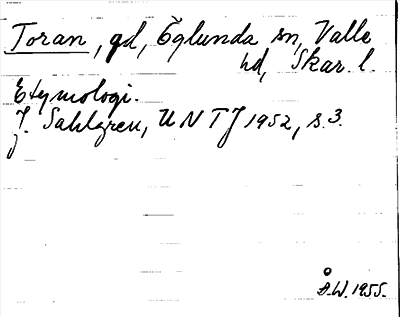 Toran, gd, Öglunda sn, Valle
hd, Skar. l.
Etymologi.
J. Sahlgren, UNTJ 1952, s. 3.
Å.W. 1955.